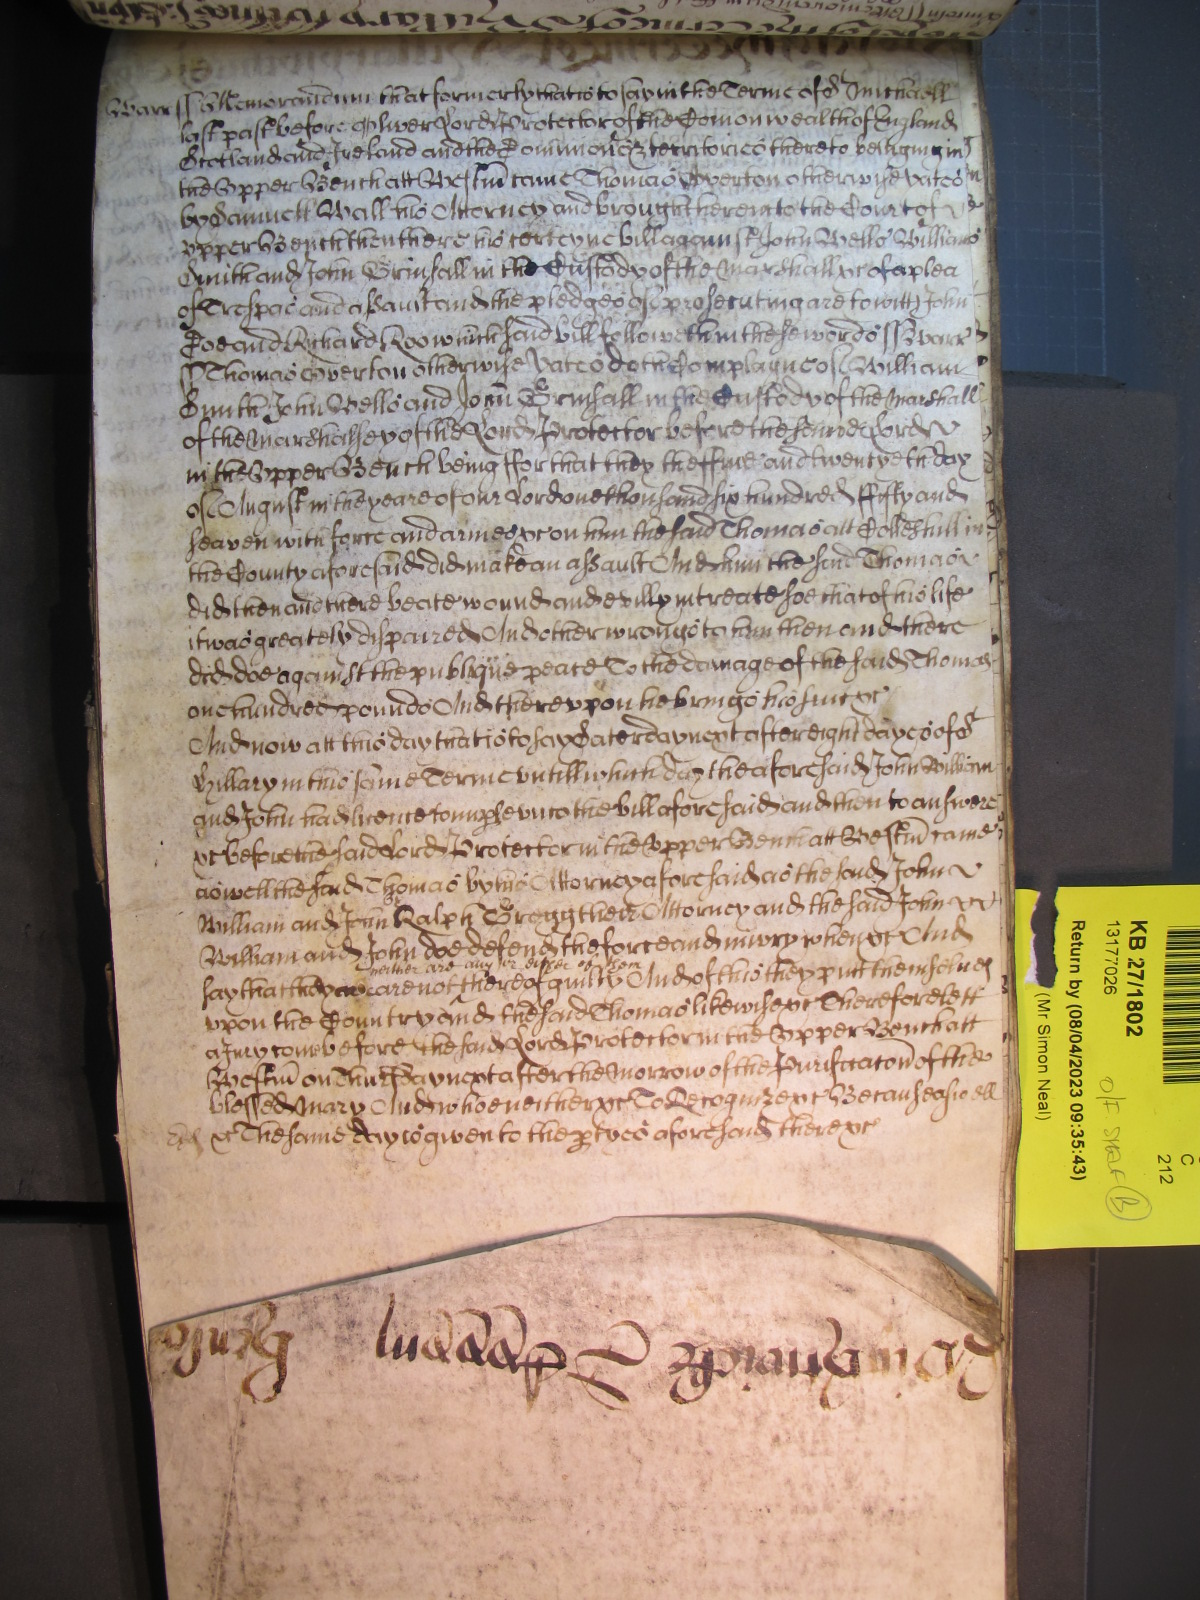 Warr ss Memorandum that formerly that is to say in the Terme of St Michaell
last past before Oliver Lord Protector of the Comonwealth of England
Scotland and Ireland and the Dominions & territories thereto belonging in
the Upper Bench att Westm̄ came Thomas Overton otherwise Yates
by Samuell Wall his Attorney and brought here into the Court of
Upper Bench then there his certeyne bill against John Wells William
Smith and John Grinsall in the Custody of the Marshall &c of a plea
of Trespas and assault and the pledges of prosecuting are to witt John
Doe and Richard Roo which said bill followeth in these words ss Warr
ss Thomas Overton otherwise Yates doth Complayne of William
Smith John Wells and John Grinsall in the Custody of the Marshall
of the Marshalsey of the Lord Protector before the same Lord
in the Upper Bench being ffor that they the ffive and twentyeth day
of August in the yeare of our Lord one thousand six hundred ffifty and
seaven with force and armes &c on him the said Thomas att Colleshill in
the County aforesaid did make an assault And him the said Thomas
did then and there beate wound and evilly intreate soe that of his life
it was greately dispaired And other wrongs to him then and there
did doe against the publique peace To the damage of the said Thomas
one hundred pounds And thereupon he brings his suit &c
And now att this day that is to say Saterday next after eight dayes of St
Hillary in this same Terme untill which day the aforesaid John William
and John had licence to imparle unto the bill aforesaid and then to answere
&c before the said Lord Protector in the Upper Bench att Westm̄ came
aswell the said Thomas by his Attorney aforesaid as the said John
William and John by Ralph Gregg their Attorney and the said John
William and John doe defend the force and iniury when &c And
neither are any or either of them
say that they are not thereof guilty And of this they putt themselves
upon the Country And the said Thomas likewise &c Therefore lett
a Jury come before the said Lord Protector in the Upper Bench att
Westm̄ on Thursday next after the Morrow of the Purificacon of the
blessed Mary And who neither &c To Recognize &c Because aswell
&c The same day is given to the ptyes aforesaid there &c
KB 27/1802
13177026
Return by (08/04/2023 09:35:43)
(Mr Simon Neal)
O/F
C
212
B